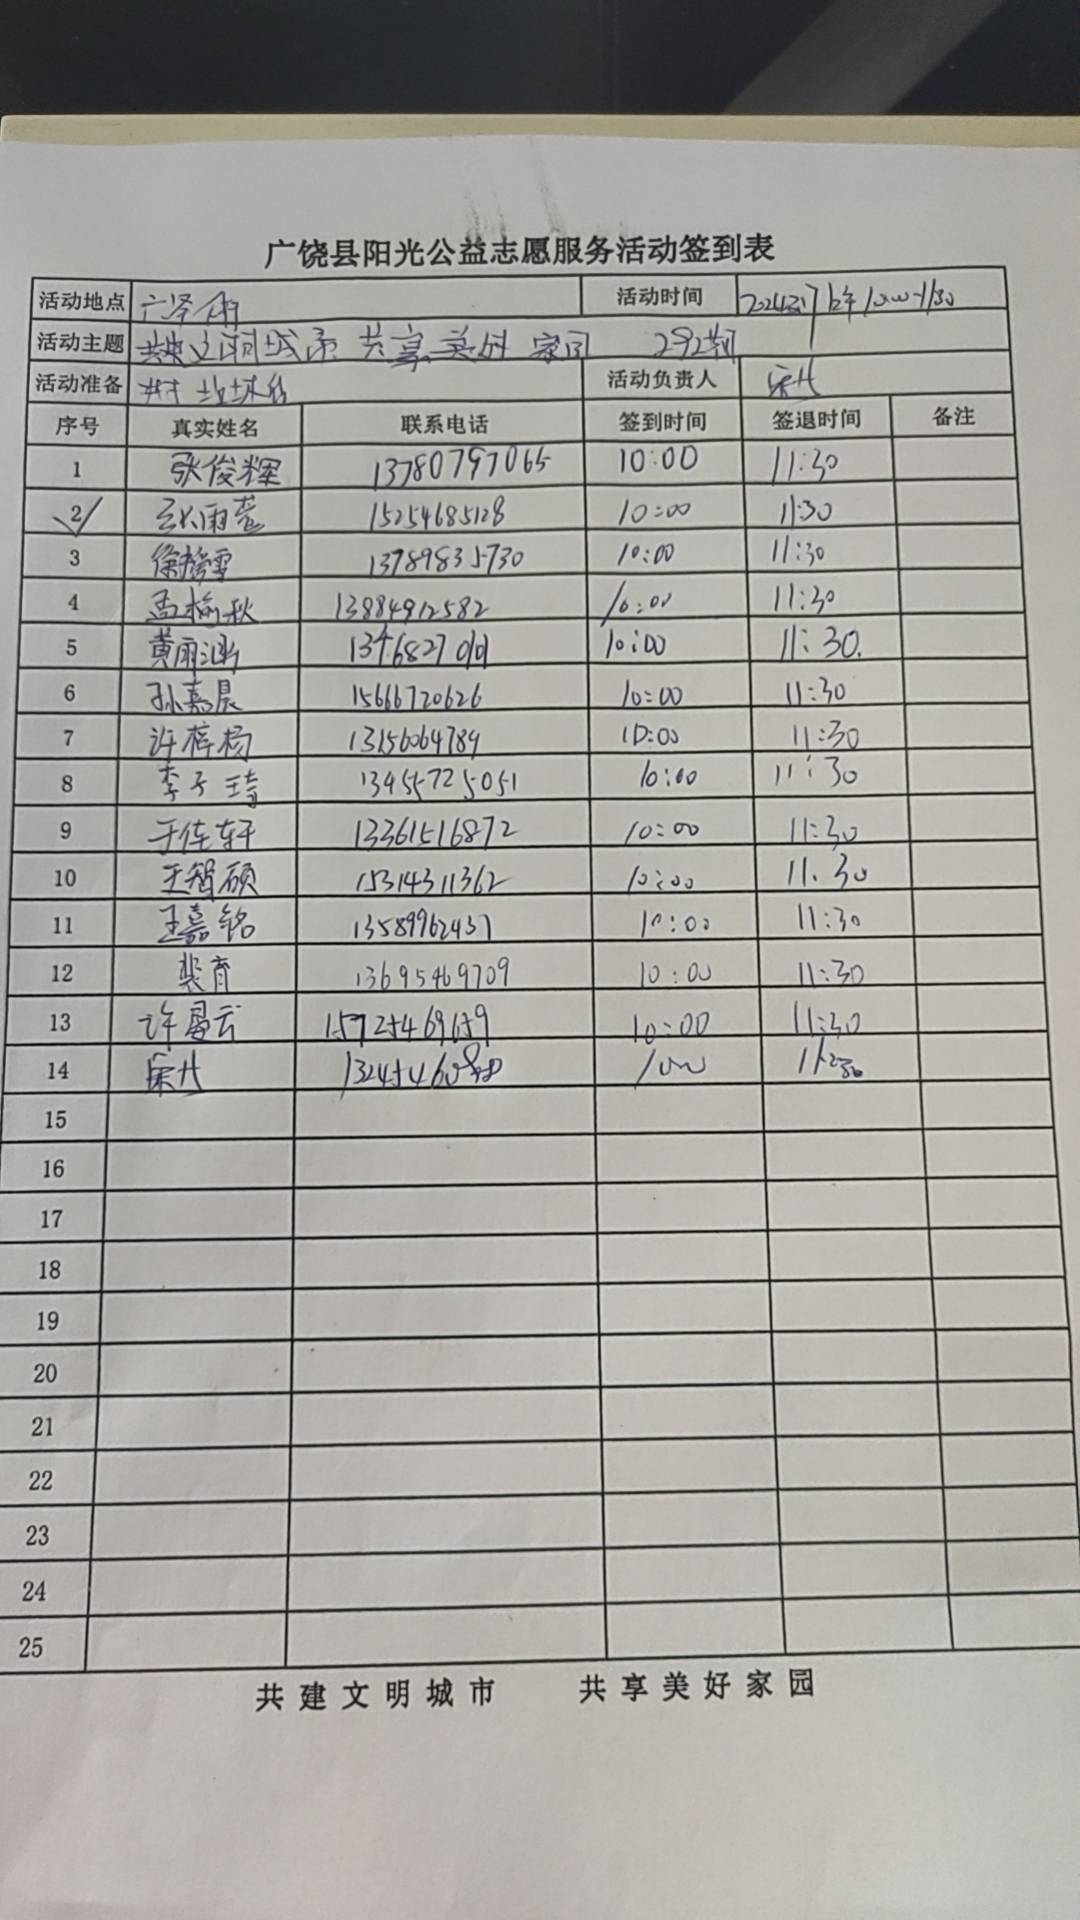 广饶县阳光公益志愿服务活动签到表
活动地点 广泽 活动时间 10:00-11:30
活动主题 共建文明城市 共享美好家园 292期
活动准备 活动负责人
序号 真实姓名 联系电话 签到时间 签退时间 备注
1 张俊辉 13780797065 10:00 11:30
2 张雨萱 15254685128 10:00 11:30
3 徐 雪 13789835730 10:00 11:30
4 孟榆秋 13884912582 10:00 11:30
5 黄雨涵 10:00 11:30.
6 孙嘉晨 15666720626 10:00 11:30
7 许梓杨 13156064789 10:00 11:30
8 李子琦 13455725051 10:00 11:30
9 于佳轩 13361516872 10:00 11:30
10 王智硕 15314311362 10:00 11:30
11 王嘉铭 13589962437 10:00 11:30
12 裴育 13695469709 10:00 11:30
13 许 云 15725469659 10:00 11:30
14
15
16
17
18
19
20
21
22
23
24
25
共建文明城市 共享美好家园